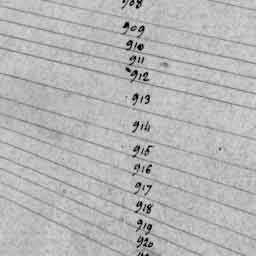 908
909
910
911
912
913
914
915
916
917
918
919
920